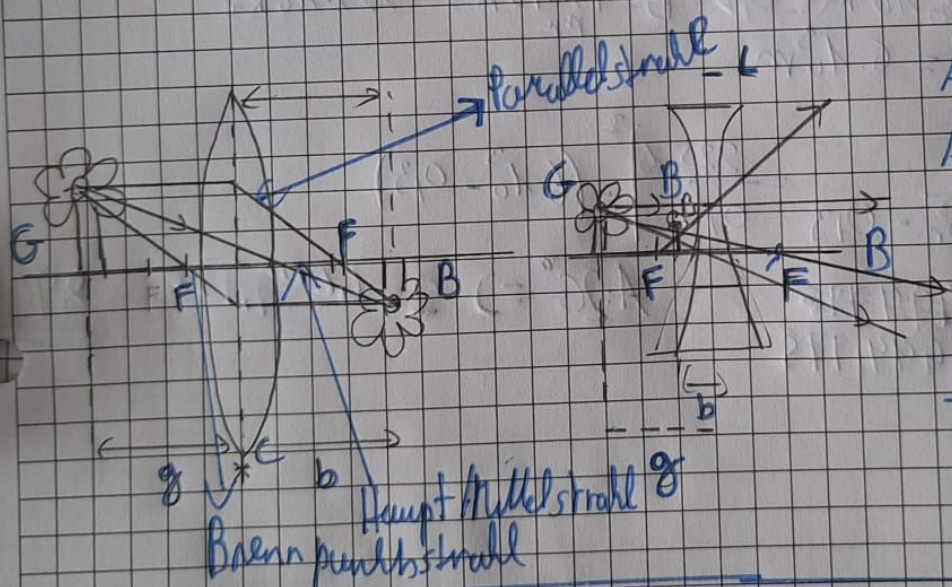 Parallelstrahl
- L
G
F
F
B
G
B
F
F
B
g
b
L
b
g
Haupt/Mittelstrahl
Brennpunktstrahl